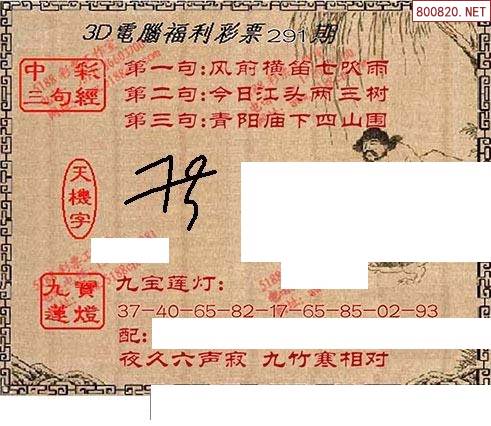 800820.NET
3D電腦福利彩票291期
中彩
三句經
第一句:风前横笛七吹雨
第二句:今日江头两三树
第三句:青阳庙下四山围
天機字
九寶
蓮燈
九宝莲灯:
37-40-65-82-17-65-85-02-93
配:
夜久六声寂 九竹寒相对